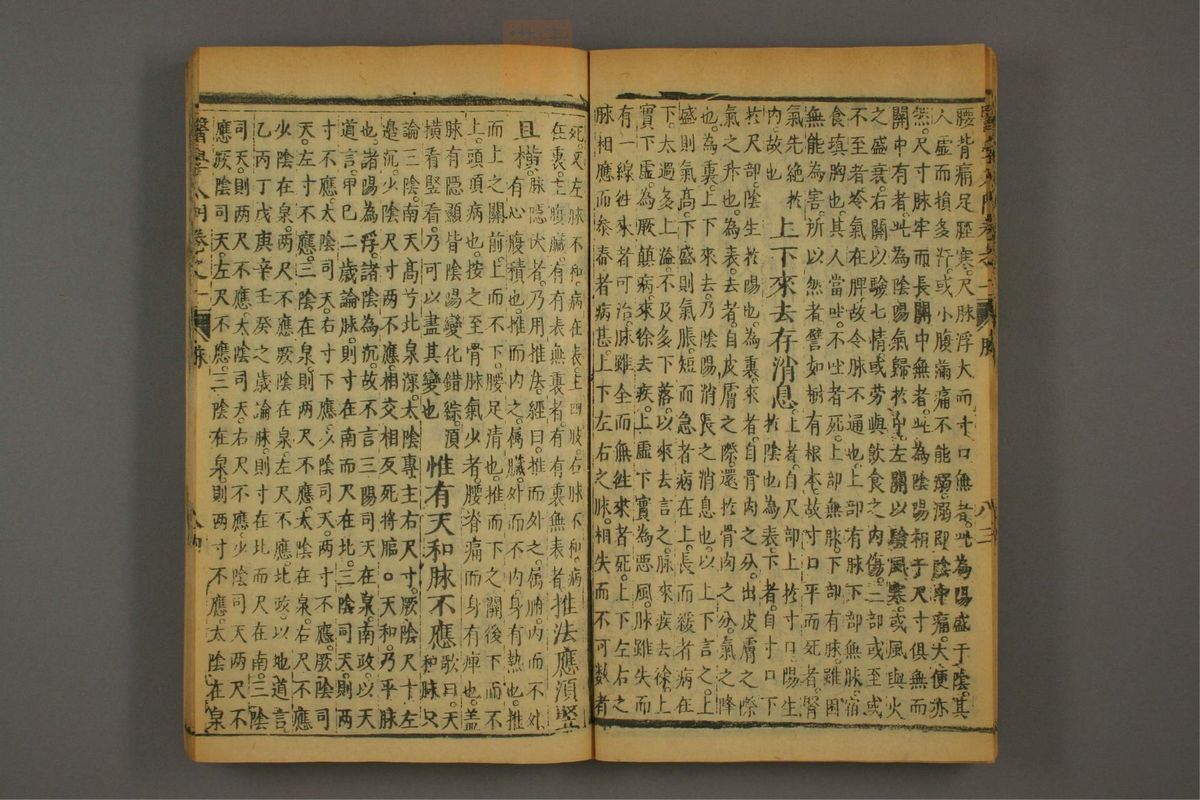 腰背痛足脛寒。尺脉浮大而寸口無者。此為陽盛于陰。其
人虛而損多汗。或小腹滿痛不能溺。溺即陰中痛。大便亦
然。尺寸脉牢而長。關中無者。此為陰陽相于。尺寸俱無而
關中有者。此為陰陽氣歸於中。左關以驗風寒。或風與火
之盛衰。右關以驗七情。或劳與飲食之内傷。三部或至或
不至者。苓氣在脾。故令脉不通也。上部有脉下部無脉。宿
食填胸也。其人當吐。不吐者死。上部無脉。下部有脉。雖困
無能為害。所以然者。譬如樹有根本。故寸口平而死者。腎
氣先絶於
内故也
上下來去存消息。
上者。自尺部上於寸口。陽生
於陰也。為表。下者。自寸口下
於尺部。陰生於陽也。為裏。來者。自骨肉之分。出皮膚之際
氣之升也。為表。去者。自皮膚之際。還於骨肉之分。氣之降
也。為裏。上下來去。乃陰陽消長之消息也。以上下言之。上
盛則氣高。下盛則氣脹。短而急者病在上。長而緩者病在
下。太過多上溢。不及多下落。以來去言之。脉來疾去徐。上
實下虛為厥巔病。來徐去疾。上虛下實為惡風。脉雖失而
有一線往來者可治。脉雖全而無往來者死。上下左右之
脉相應而參舂者病甚。上下左右之脉。相失而不可数者
死。又左脉不和。病在表主四肢。右脉不和。病
在裏。主腹臟。有有表無裏者。有有裏無表者
推法應須竪
且橫。
脉隱伏者。乃用推法。經曰。推而外之。属腑。内而不外
有心腹積也。推而内之。属臟。外而不内。身有熱也。推
而上之。關前上而不下。腰足清也。推而下之。關後下而不
上。頭項病也。按之至骨。脉氣少者。腰脊痛而身有痺也。盖
脉有隱顯。皆陰陽變化錯綜。須
橫看竪看。乃可以盡其變也
惟有天和脉不應
歌曰。天
和脉只
論三陰。南天髙亐北泉深。太陰專主右尺寸。厥陰尺寸左
邉沉。少陰尺寸两不應。相交相反死將臨。○天和。乃平脉
也。諸陽為浮。諸陰為沉。故不言三陽司天在泉。南政。以天
道言。甲巳二歳論脉。則寸在南而尺在北。三陰司天。則两
寸不應。太陰司天。右寸下應。少陰司天。两寸不應。厥陰司
天。左寸不應。三陰在泉。則两尺不應。太陰在泉。右尺不應
少陰在泉。两尺不應。厥陰在泉。左尺不應。北政。以地道言。
乙丙丁戊庚辛壬癸之歳論脉。則寸在北而尺在南。三陰
司天。則两尺不應。太陰司天。右尺不應。少陰司天两尺不
應。厥陰司天。左尺不應。三陰在泉。則两寸不應。太陰在泉